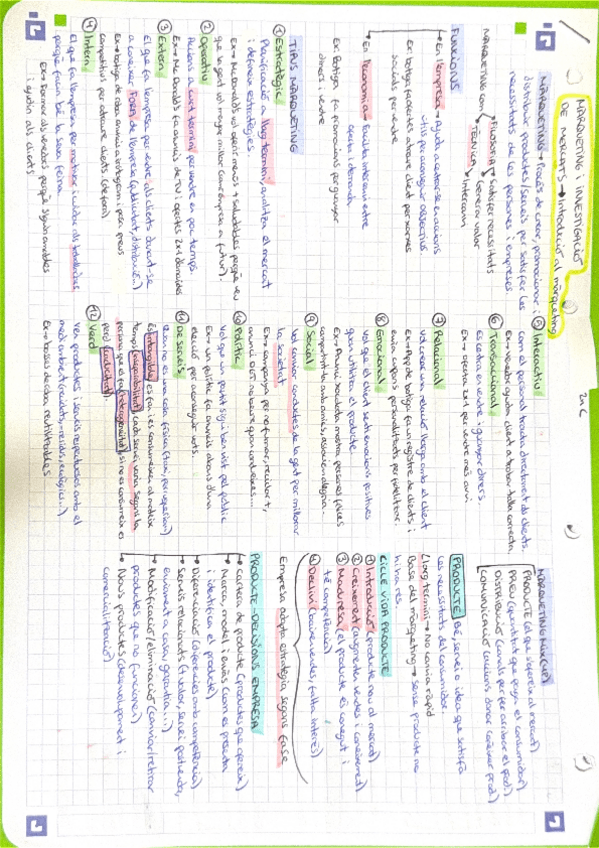 MÀRQUETING i INVESTIGACIÓ
DE MERCATS → Introducció al màrqueting
2n C
MÀRQUETING → Procés de crear, promocionar i
distribuir productes/serveis per satisfer les
necessitats de les persones i empreses.
MÀRQUETING com
FILOSOFIA → Satisfer necessitats
Generar valor
TÈCNICA → Intercanvi
FUNCIONS
→ En l'empresa → Ajuda a centrar-se en accions
útils per aconseguir objectius.
Ex: botiga fa ofertes atraure client per xarxes
socials per vendre
→ En l'economia → Facilita intercanvi entre
oferta i demanda
Ex: Botiga fa promocions per guanyar
diners i vendre
TIPUS MÀRQUETING
① Estratègic
Planificació a llarg termini, analitza el mercat
i defineix estratègies.
Ex → McDonalds vol oferir menús + saludables perquè veu
que la gent vol menjar millor (canvi empresa a futur).
② Operatiu
Accions a curt termini per vendre en poc temps.
Ex → Mc Donalds fa anuncis de TV i ofertes 2x1 dimecres
③ Extern
El que fa l'empresa per vendre als clients donant-se
a conèixer fora de l'empresa (publicitat, distribució...)
Ex → botiga de roba anuncia a Instagram i posa preus
competitius per atraure clients (de fora)
④ Intern
El que fa l'empresa per motivar i cuidar als treballadors
perquè facin bé la seva feina.
Ex → Formar als venedors perquè siguin amables
i ajudin als clients
⑤ Interactiu
Com el personal tracta directament als clients.
Ex → venedor ajuda client a trobar talla correcta.
⑥ Transaccional
Es centra en vendre i guanyar diners.
Ex → oferta 2x1 per vendre més avui
⑦ Relacional
Vol crear una relació llarga amb el client
Ex → App de botiga fa un registre de clients i
envia cupons personalitzats per fidelitzar.
⑧ Emocional
Vol que el client senti emocions positives
quan utilitza el producte.
Ex → Anunci xocolata mostra persones felices
compartint-la amb amics, associen alegria.
⑨ Social
Vol canviar conductes de la gent per millorar
la societat
Ex → campanya per no fumar, reciclar +,
anunci per no beure quan condueixes.
⑩ Polític
Vol que un partit sigui ben vist pel públic
Ex → un polític fa anuncis abans d'una
elecció per aconseguir vots.
⑪ De serveis
quan no es una cosa física (taxi, perruqueria)
És intangible, es fan i es consumeixen al mateix
temps (inseparabilitat), cada servei varia segons la
persona que el fa (heterogeneïtat) si no es consumeix es
perd (caducitat)
⑫ Verd
Ven productes i serveis respectuosos amb el
medi ambient (productes, residus, energies...)
Ex → bosses de roba reutilitzables
MÀRQUETING MIX (4P)
PRODUCTE (el que s'ofereix al mercat)
PREU (quantitat que paga el consumidor)
DISTRIBUCIÓ (canals per fer arribar el prod.)
COMUNICACIÓ (accions donar conèixer prod.)
PRODUCTE (bé, servei o idea que satisfà
les necessitats del consumidor.
(Llarg termini → No canvia ràpid
Base del màrqueting → sense producte no
hi ha res.
CICLE VIDA PRODUCTE
① Introducció (producte nou al mercat)
② Creixement (augmenten vendes i coneixença)
③ Maduresa (el producte és conegut i
té competència)
④ Declivi (baixen vendes, falta interès)
Empresa adapta estratègia segons fase
PRODUCTE - DECISIONS EMPRESA
→ Cartera de producte (productes que ofereix)
→ Marca, model i envàs (com es presenta
i identifica el producte)
→ Diferenciació (diferències amb competència)
→ Serveis relacionats (+ valor, servei postvenda,
enviament a casa, garantia...)
→ Modificació / eliminació (canviar/retirar
productes que no funcionen)
→ Nous productes (desenvolupament i
comercialització)